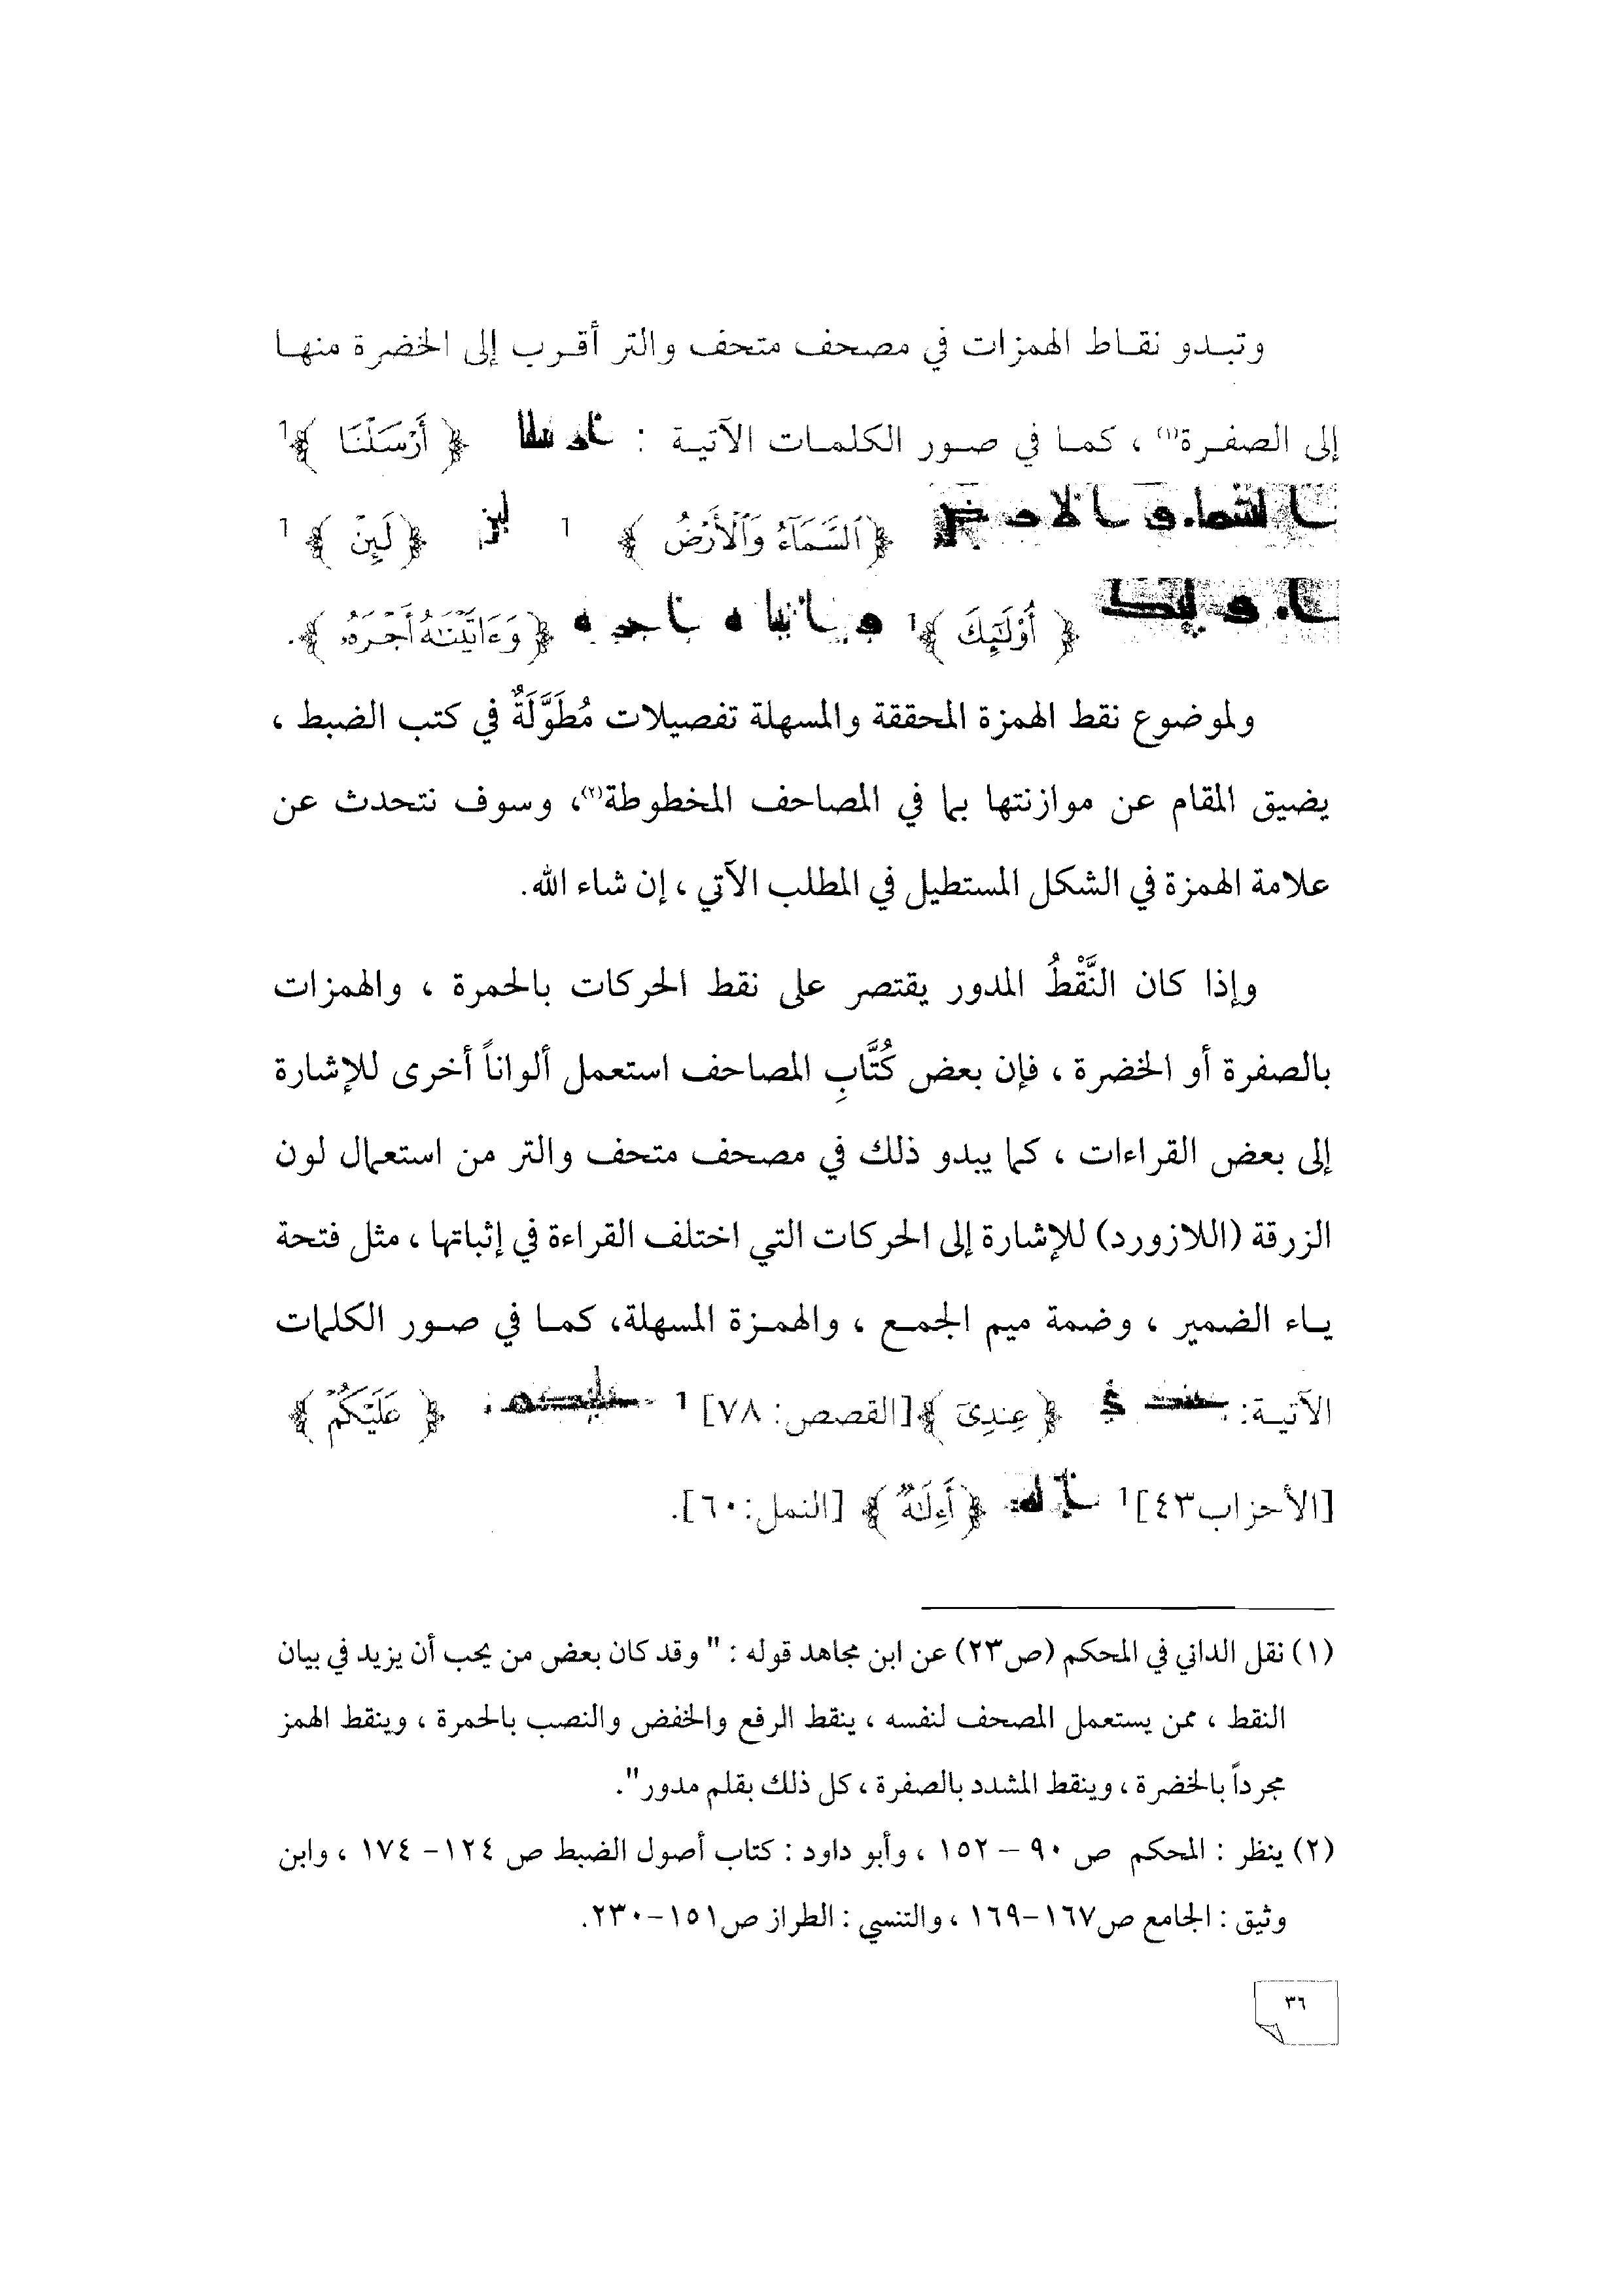 وتبدو نقاط الهمزات في مصحف متحف والتر أقرب إلى الخضرة منها
إلى الصفرة(١) ، كما في صور الكلمات الآتية : ﴿ أَرْسَلْنَا ﴾ 1
﴿ ٱلسَّمَآءُ وَٱلْأَرْضُ ﴾ 1 ﴿ لَئِنْ ﴾ 1
﴿ أُوْلَٰٓئِكَ ﴾ 1 ﴿ وَءَاتَيْنَٰهُ أَجْرَهُۥ ﴾.
ولموضوع نقط الهمزة المحققة والمسهلة تفصيلات مُطَوَّلَةٌ في كتب الضبط ،
يضيق المقام عن موازنتها بما في المصاحف المخطوطة(٢)، وسوف نتحدث عن
علامة الهمزة في الشكل المستطيل في المطلب الآتي ، إن شاء الله.
وإذا كان النَّقْطُ المدور يقتصر على نقط الحركات بالحمرة ، والهمزات
بالصفرة أو الخضرة ، فإن بعض كُتَّابِ المصاحف استعمل ألواناً أخرى للإشارة
إلى بعض القراءات ، كما يبدو ذلك في مصحف متحف والتر من استعمال لون
الزرقة (اللازورد) للإشارة إلى الحركات التي اختلف القراءة في إثباتها ، مثل فتحة
ياء الضمير ، وضمة ميم الجمع ، والهمزة المسهلة، كما في صور الكلمات
الآتية: ﴿ عِندِىٓ ﴾[القصص: ٧٨] 1 ﴿ عَلَيْكُمْ ﴾
[الأحزاب٤٣] 1 ﴿ أَءِلَٰهٌ ﴾ [النمل:٦٠].
(١) نقل الداني في المحكم (ص٢٣) عن ابن مجاهد قوله : " وقد كان بعض من يحب أن يزيد في بيان
النقط ، ممن يستعمل المصحف لنفسه ، ينقط الرفع والخفض والنصب بالحمرة ، وينقط الهمز
مجرداً بالخضرة ، وينقط المشدد بالصفرة ، كل ذلك بقلم مدور".
(٢) ينظر : المحكم ص ٩٠ – ١٥٢ ، وأبو داود : كتاب أصول الضبط ص ١٢٤- ١٧٤ ، وابن
وثيق : الجامع ص١٦٧-١٦٩ ، والتنسي : الطراز ص١٥١-٢٣٠.
٣٦